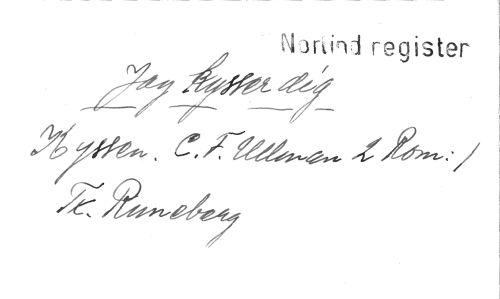 Norlind register
Jag kysser dig
Kyssen. C. F. Ullman 2 Rom: /
Tk. Runeberg